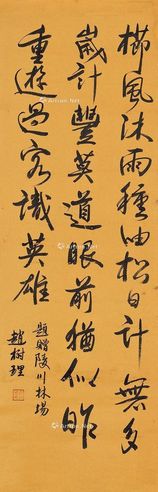 櫛風沐雨種油松日計無多
歲計豐莫道眼前猶似昨
重遊過客識英雄
題贈陵川林場
趙樹理